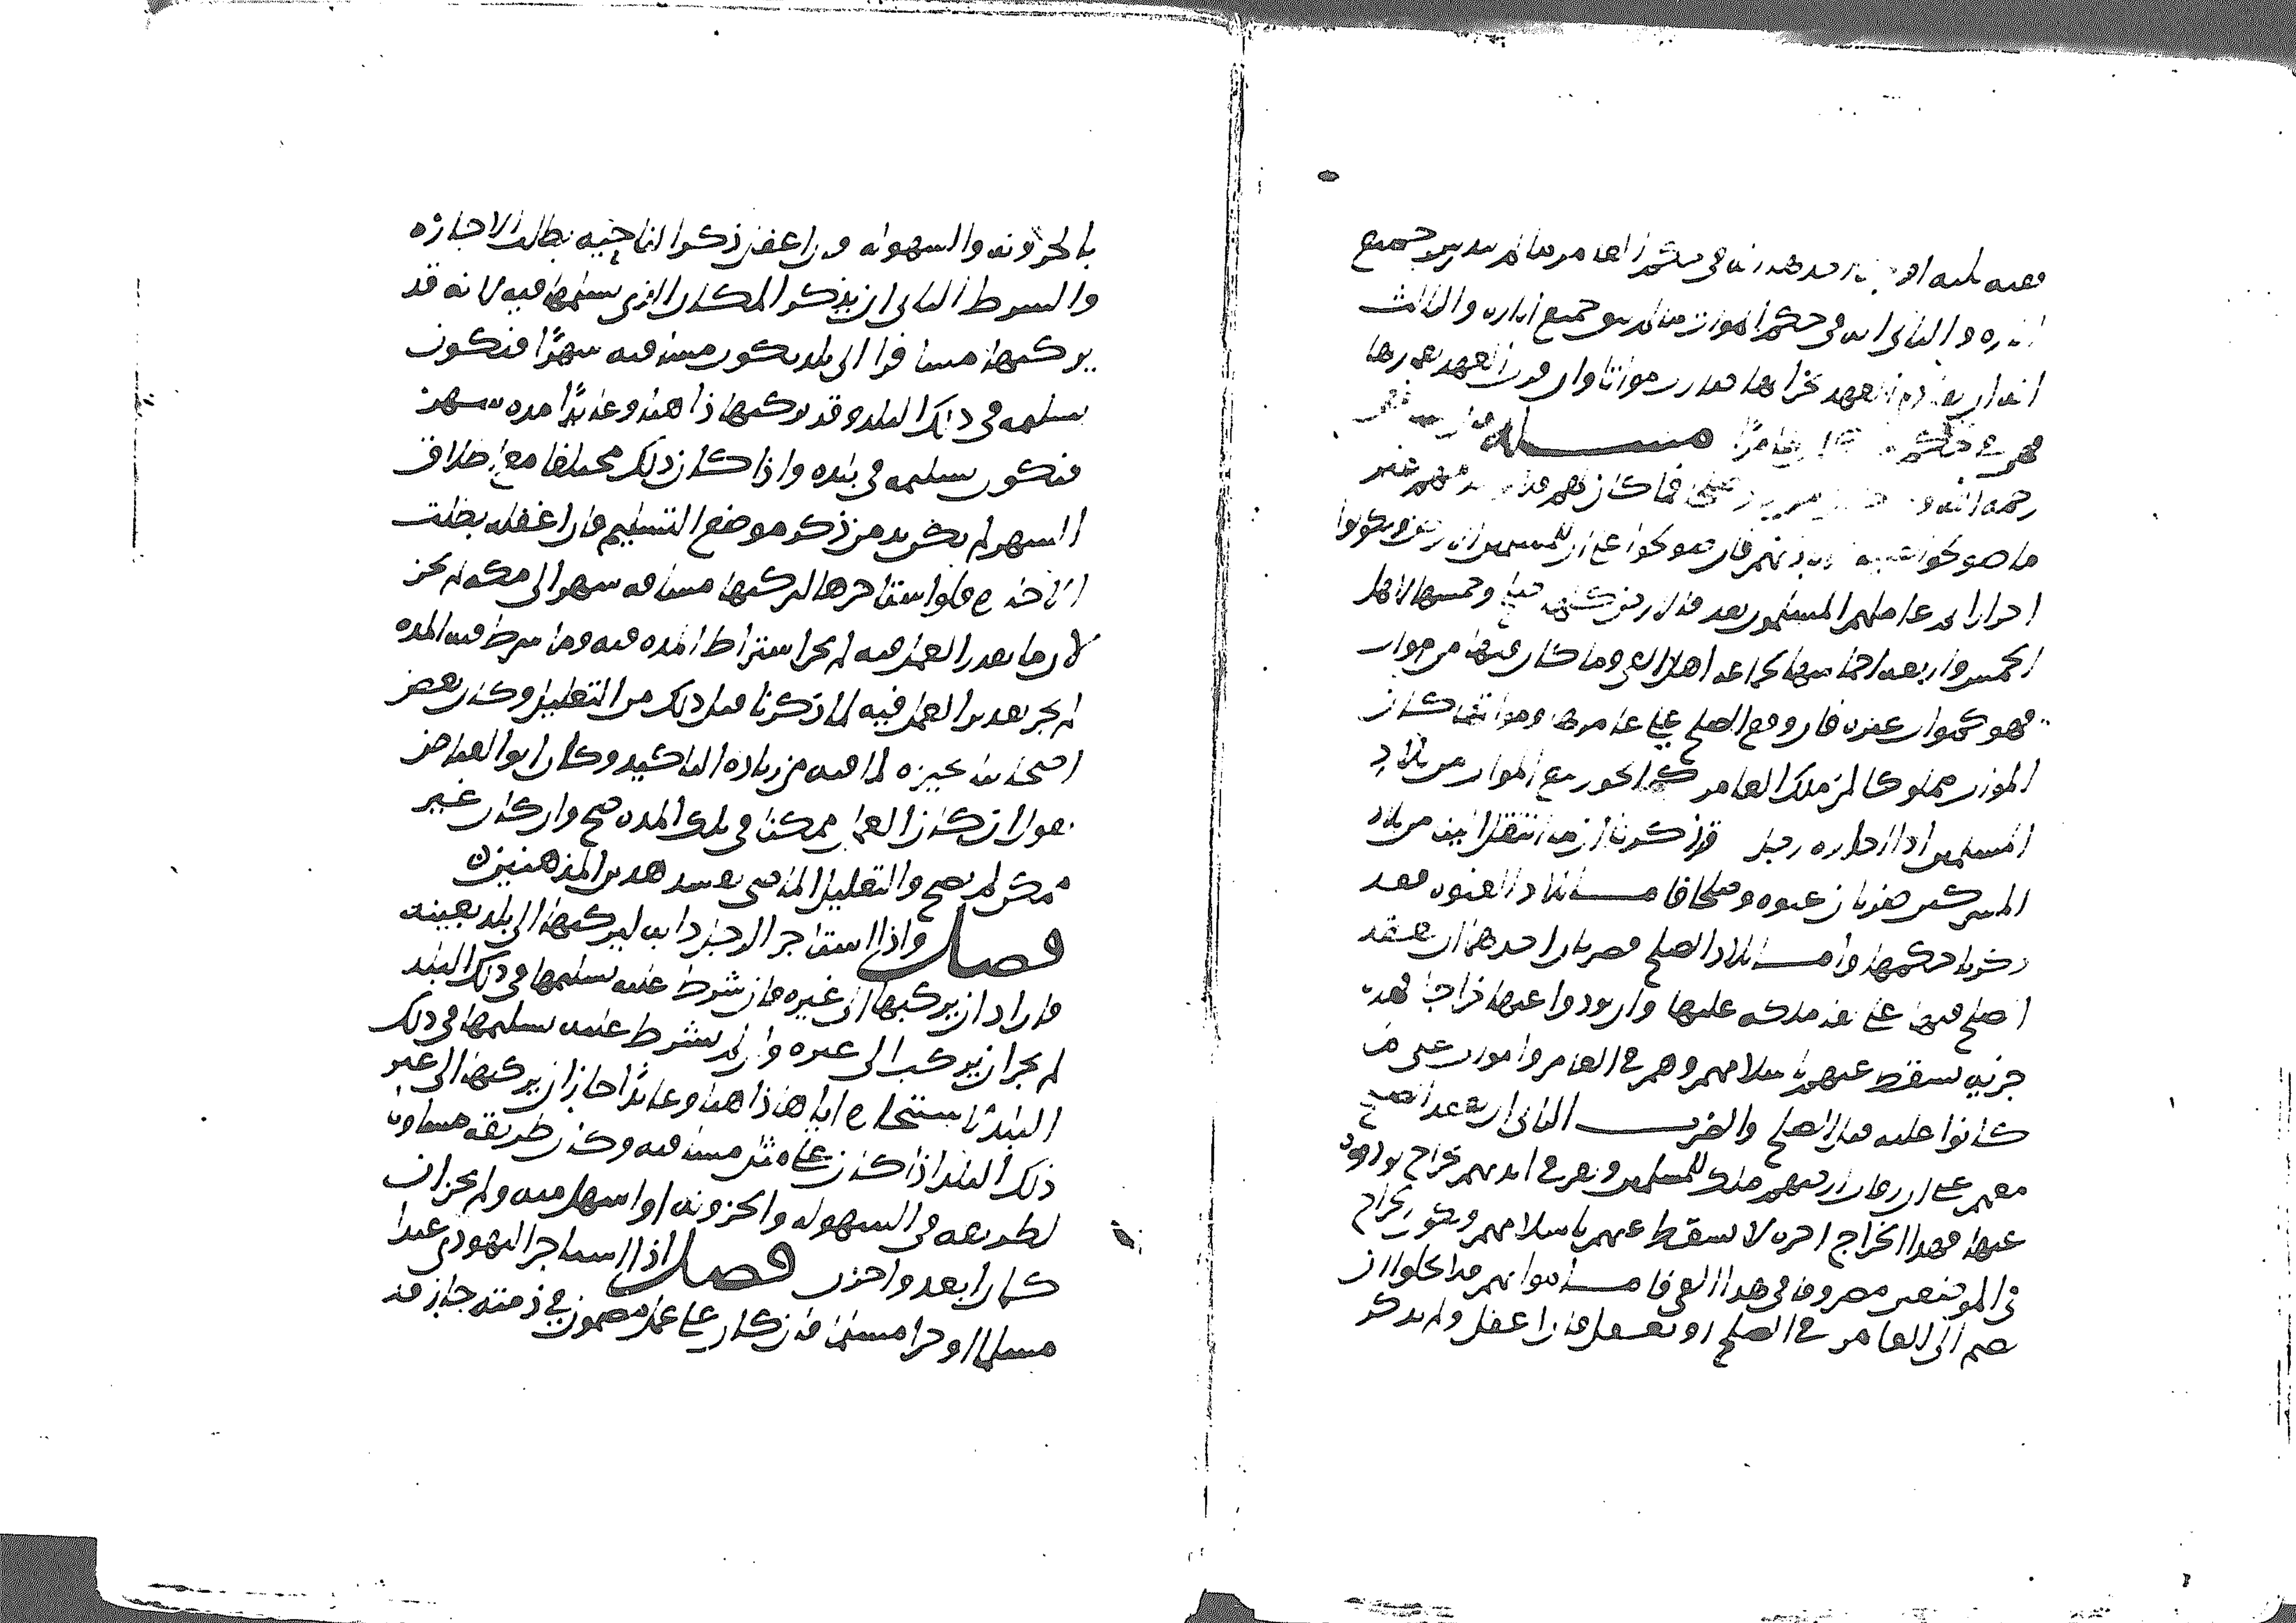 ففيه ثلاثة اوجه احدهما انه في حكم العامر ما لم يندرس جميع
اثاره والثاني انه في حكم الموات ما لم يبق جميع اثاره والثالث
انه ان بعد العهد بخرابها صارت مواتا وان قرب العهد بخرابها
فهي في حكم عامرا مسله
رحمه الله وما كان لهم
ما صولحوا عليه فان صولحوا على ان للمسلمين الارض ويكونوا
احرارا ثم عاملهم المسلمون بعد فالارض كلها صلح وخمسها لاهل
الخمس واربعة اخماسها لجماعة اهل الفي وما كان فيها من موات
فهو كموات غيره فان وقع الصلح على عامرها ومواتها كان
الموات مملوكا لمن ملك العامر كما يجوز بيع الموات من بلاد
المسلمين اذا حازه رجل قد ذكرنا ان ما انتقل الينا من بلاد
المشركين ضربان عنوه وصلحا فاما بلاد العنوه فقد
ذكرنا حكمها واما بلاد الصلح فضربان احدهما ان يعقد
الصلح فيها على بقا ملكهم عليها وان يودوا عنها خراجا فهذه
جزيه تسقط عنهم باسلامهم وهم في العامر والموات على ما
كانوا عليه قبل الصلح والضرب الثاني ان يعقد الصلح
معهم على ان رقاب ارضهم ملك للمسلمين وتقر في ايديهم بخراج يودونه
عنها فهذا الخراج اجره لا يسقط عنهم باسلامهم ويكون الخراج
في الموضعين مصروفا في هذا الفي فاما مواتهم فلا يخلوا ان
يضم الى العامر في الصلح او يغفل فان اغفل ولم يذكر
بالحزونه والسهوله فان اغفل ذكر الناحيه بطلت الاجازه
والشرط الثاني ان يذكر المكان الذي يسلمها فيه لانه قد
يركبها مسافرا الى بلد يكون مسافته شهرا فيكون
تسليمه في ذلك البلد وقد يركبها ذاهبا وعايدا مده شهر
فيكون تسليمه في بلده واذا كان ذلك مختلفا مع اطلاق
الشهر لم يكن بد من ذكر موضع التسليم فان اغفله بطلت
الاجاره فلو استاجرها ليركبها مسافه شهر الى مكه لم يجز
لان ما تقدر العمل فيه لم يجز اشتراط المده فيه وما شرط فيه المده
لم يجز تقدير العمل فيه لما ذكرنا قبل ذلك من التعليل وكان بعض
اصحابنا يجيزه لما فيه من زياده التاكيد وكان ابو الفياض
يقول ان كان العمل ممكنا في تلك المده صح وان كان غير
ممكن لم يصح والتعليل الماضي يفسد هذين المذهبين
فصل واذا استاجر الرجل دابه ليركبها الى بلد بعينه
فاراد ان يركبها الى غيره فان شرط عليه تسليمها في ذلك البلد
لم يجز ان يركب الى غيره وان لم يشترط عليه تسليمها في ذلك
البلد لاستيجاره اياها ذاهبا وعايدا جاز ان يركبها الى غير
ذلك البلد اذا كان على مثل مسافته وكان طريقه مساويا
لطريقه في السهوله والحزونه او اسهل منه ولم يجز ان
كان ابعد واحزن فصل اذا استاجر اليهودي عبدا
مسلما او حرا مسلما فان كان على عمل مضمون في ذمته جاز قد